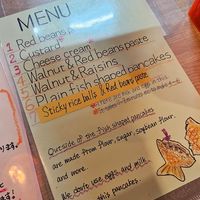 MENU
1 Red beans paste
2 Custard
3 Cheese cream
4 Walnut & Red beans paste
5 Walnut & Raisins
6 Plain Fish shaped pancakes
7 Sticky rice balls & Red beans paste
Outside of the fish shaped pancakes
are made from flour, sugar, soybean flour,
and more.
We don't use eggs and milk
this pancakes.
ります。